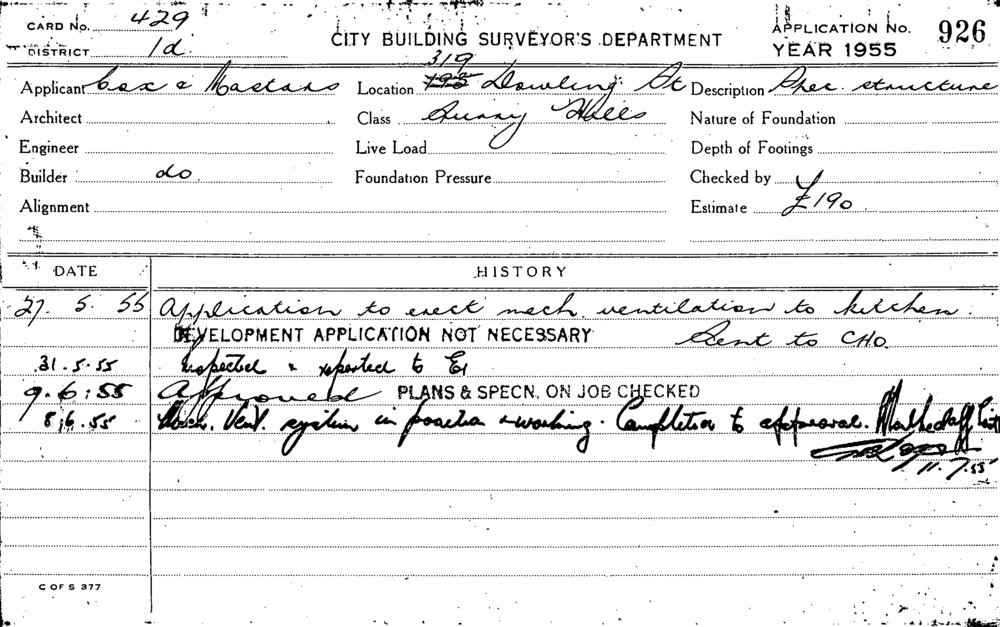 CARD No. 429
DISTRICT 1d
CITY BUILDING SURVEYOR'S DEPARTMENT
APPLICATION No. 926
YEAR 1955
Applicant Cox & Mastans
Location 319 Dowling St
Description Spec. structure
Architect
Class Surry Hills
Nature of Foundation
Engineer
Live Load
Depth of Footings
Builder do.
Foundation Pressure
Checked by
Alignment
Estimate £190
DATE HISTORY
27. 5. 55 Application to erect mech. ventilation to kitchen.
DEVELOPMENT APPLICATION NOT NECESSARY Sent to CHO.
31.5.55 Inspected & reported to
9.6.55 Approved PLANS & SPECN. ON JOB CHECKED
8.6.55 Mech. Vent. system in position & working. Completion to approval.
11.7.55
C OF S 377